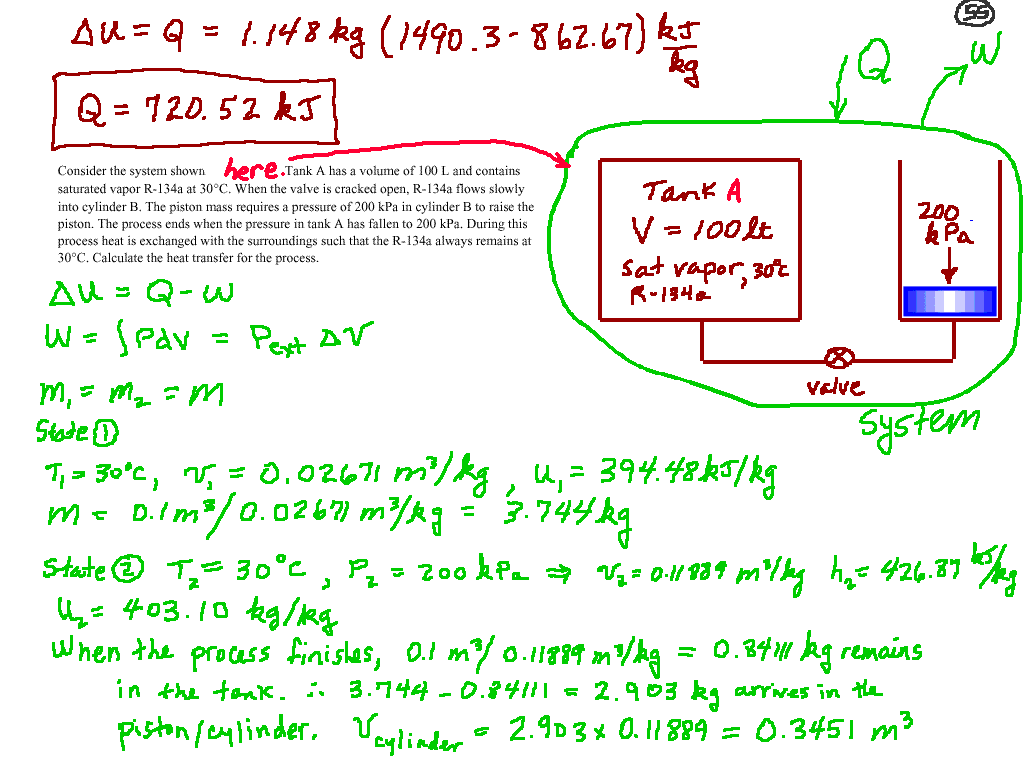 55
ΔU = Q = 1.148 kg (1490.3 - 862.67) kJ/kg
Q = 720.52 kJ
Q
W
Consider the system shown here. Tank A has a volume of 100 L and contains
saturated vapor R-134a at 30°C. When the valve is cracked open, R-134a flows slowly
into cylinder B. The piston mass requires a pressure of 200 kPa in cylinder B to raise the
piston. The process ends when the pressure in tank A has fallen to 200 kPa. During this
process heat is exchanged with the surroundings such that the R-134a always remains at
30°C. Calculate the heat transfer for the process.
Tank A
V = 100 lt
Sat vapor, 30°C
R-134a
200
kPa
valve
System
ΔU = Q - W
W = ∫ PdV = Pext ΔV
m₁ = m₂ = m
State ①
T₁ = 30°C, v₁ = 0.02671 m³/kg, u₁ = 394.48 kJ/kg
m = 0.1 m³/0.02671 m³/kg = 3.744 kg
State ② T₂ = 30°C, P₂ = 200 kPa ⇒ v₂ = 0.11889 m³/kg h₂ = 426.87 kJ/kg
U₂ = 403.10 kg/kg
When the process finishes, 0.1 m³/0.11889 m³/kg = 0.84111 kg remains
in the tank. ∴ 3.744 - 0.84111 = 2.903 kg arrives in the
piston/cylinder. Vcylinder = 2.903 x 0.11889 = 0.3451 m³